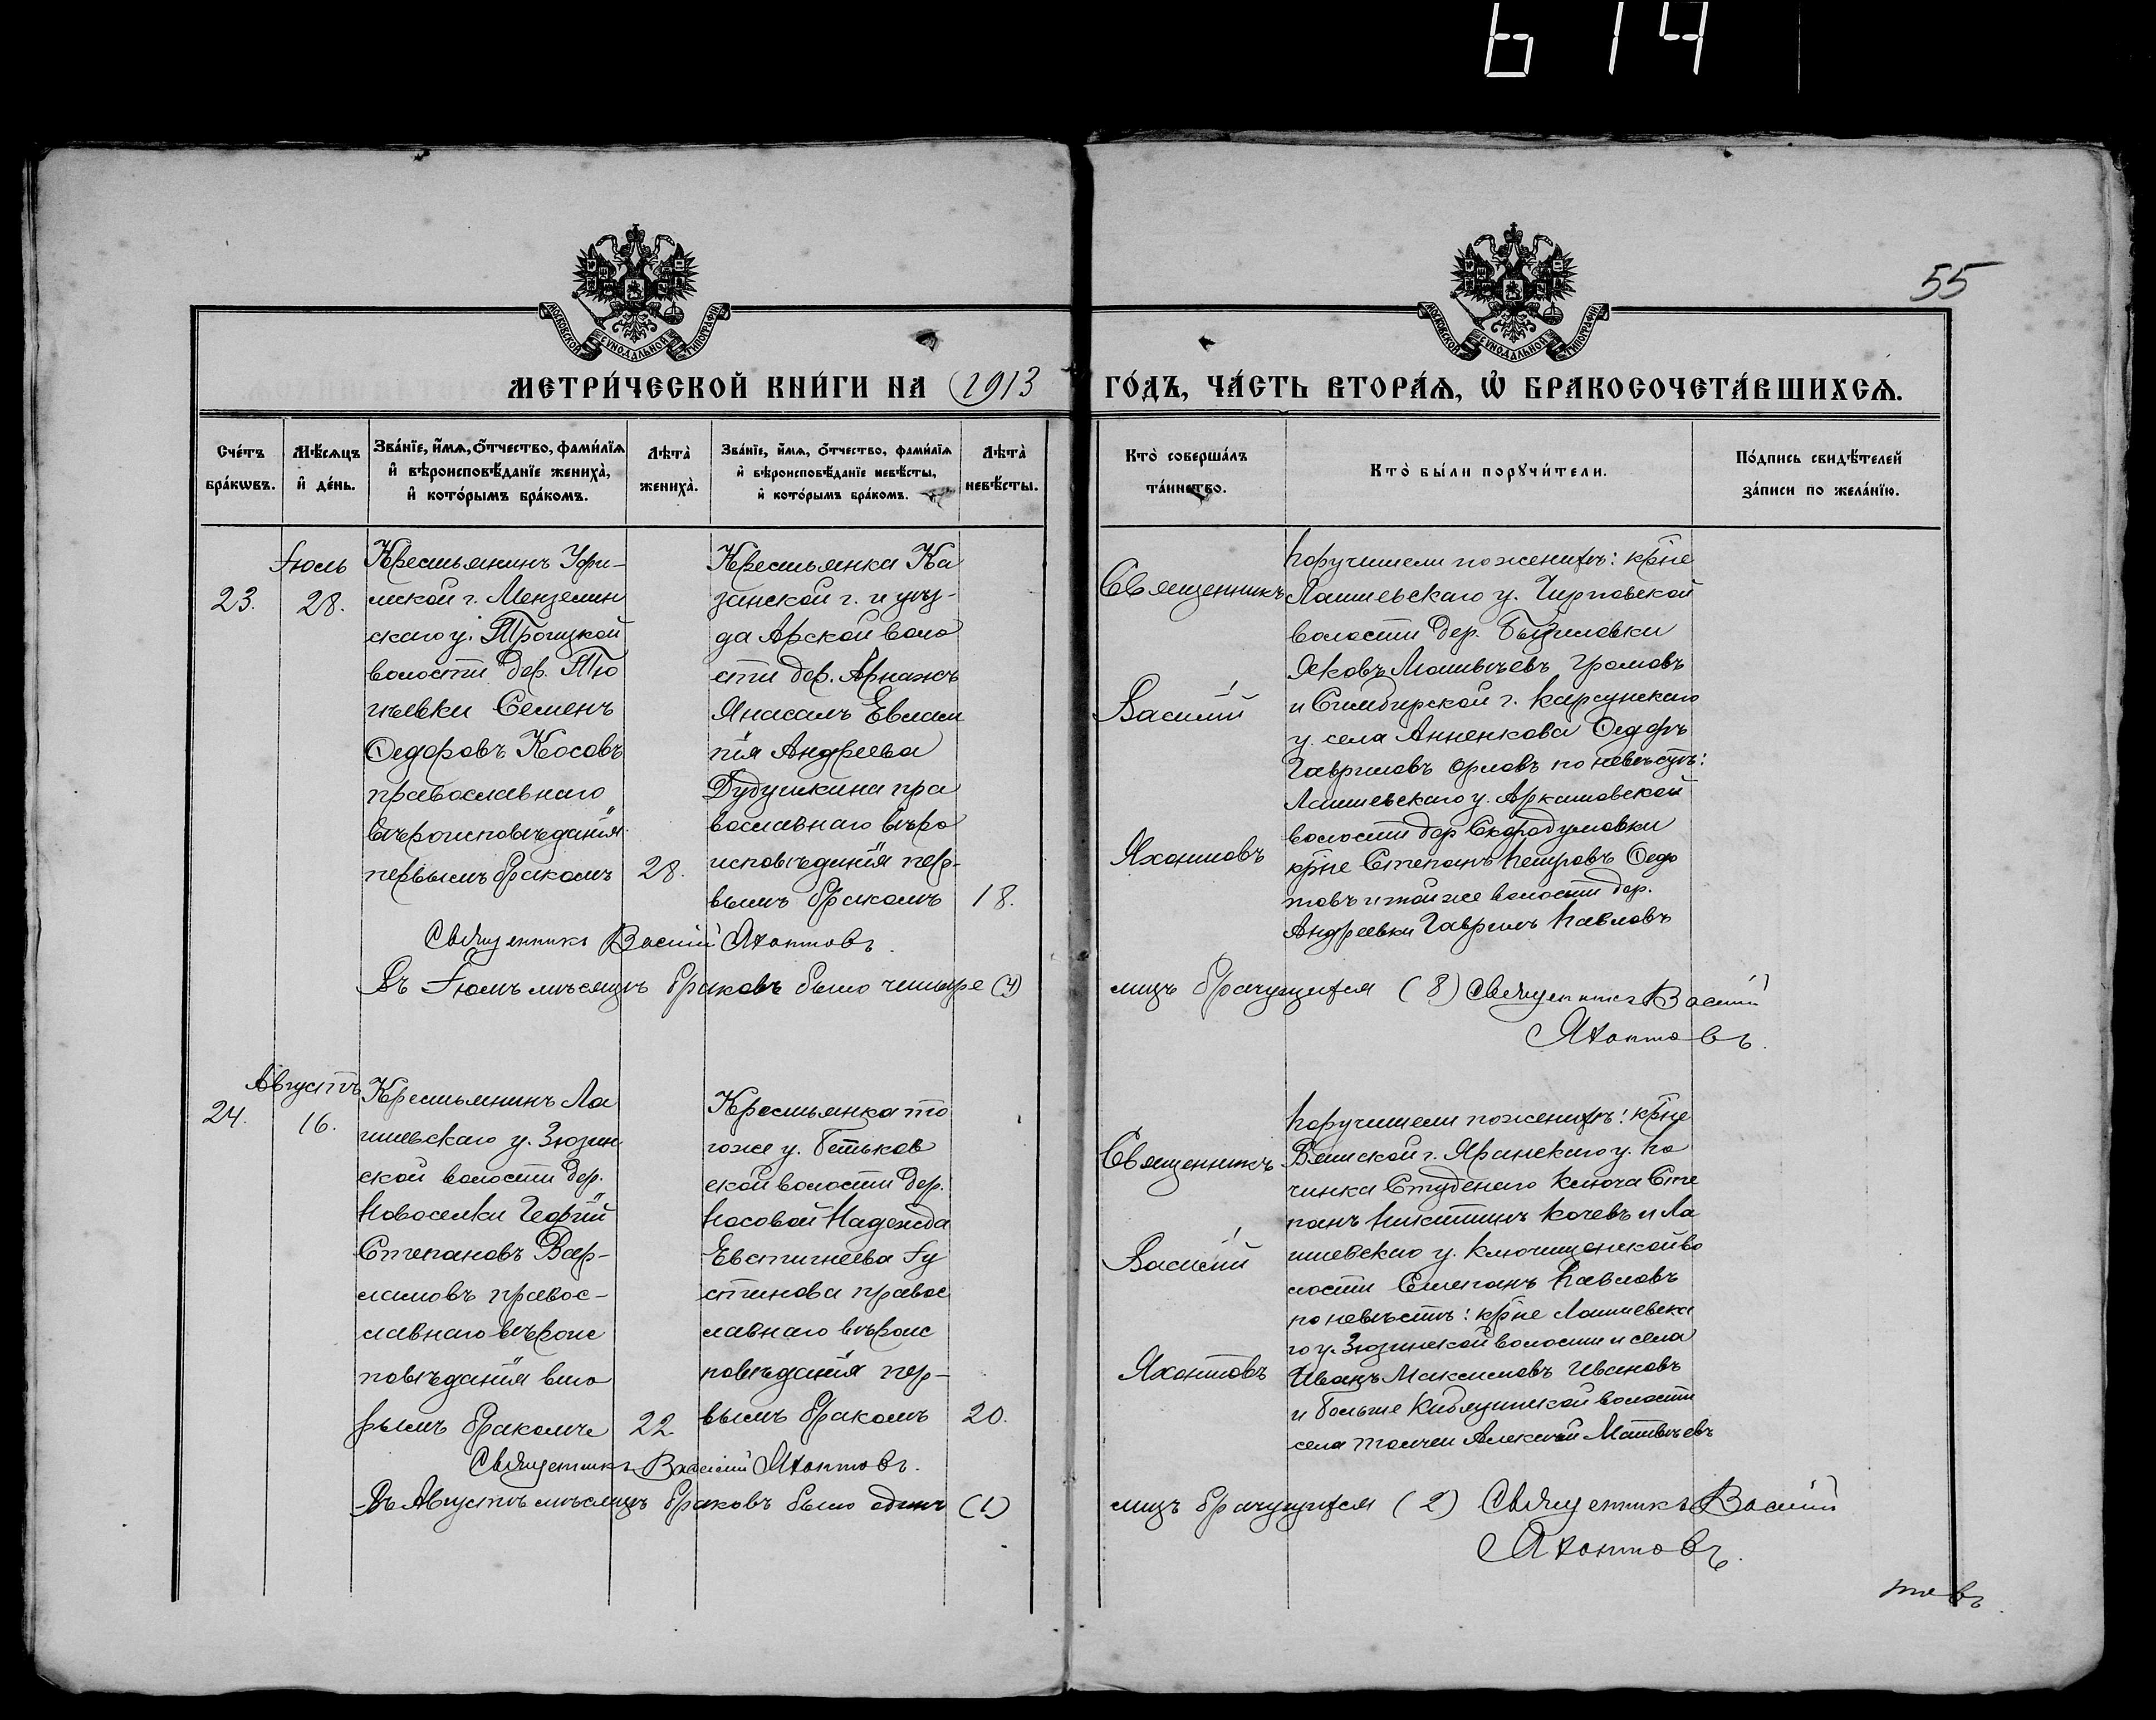 614
55
МОСКОВСКОЙ СѴНОДАЛЬНОЙ ТИПОГРАФІИ
МОСКОВСКОЙ СѴНОДАЛЬНОЙ ТИПОГРАФІИ
МЕТРИ́ЧЕСКОЙ КНИ́ГИ НА 1913 ГО́ДЪ, ЧА́СТЬ ВТОРА́Ѧ, Ѡ҆ БРАКОСОЧЕТА́ВШИХСѦ.
Сче́тъ бра́кѡвъ.
Мѣ́сѧцъ и҆ де́нь.
Зва́нїе, и҆́мѧ, о҆́тчество, фами́лїѧ
и҆ вѣроисповѣ́данїе жениха̀,
и҆ кото́рымъ бра́комъ.
Лѣта̀ жениха̀.
Зва́нїе, и҆́мѧ, о҆́тчество, фами́лїѧ
и҆ вѣроисповѣ́данїе невѣ́сты,
и҆ кото́рымъ бра́комъ.
Лѣта̀ невѣ́сты.
Кто̀ соверша́лъ
та́инство.
Кто̀ бы́ли порꙋчи́тели.
По́дпись свидѣ́телей
за́писи по жела́нїю.
23.
Іюль
28.
Крестьянинъ Уфи-
мской г. Мензелин
скаго у. Троицкой
волости дер. Тю
Семенъ
Ѳедоровъ Косовъ
православнаго
вѣроисповѣданія
первымъ бракомъ
28.
Крестьянка Ка
занской г. и уѣз-
да Арской воло
сти дер.
Евлам
пія Андреева
Дудушкина пра
вославнаго вѣро
исповѣданія пер-
вымъ бракомъ
18.
Священникъ
Василій
Яхонтовъ
Поручители по женихѣ: кр̃не
Лаишевскаго у. Чирповской
волости дер.
Яковъ Матвѣевъ Громовъ
и Симбирской г. Карсунскаго
у. села Анненкова Ѳедоръ
Гавриловъ Орловъ по невѣстѣ:
Лаишевскаго у.
волости дер. Скородумовки
кр̃не Степанъ Петровъ Ѳедо
товъ и той же волости дер.
Андреевки Гавріилъ Павловъ
Священникъ Василій Яхонтовъ.
Въ Іюлѣ мѣсяцѣ браковъ было четыре (4)
лицъ брачущихся (8) Священникъ Василій
Яхонтовъ.
24.
Августъ
16.
Крестьянинъ Ла
ишевскаго у. Зюзин
ской волости дер.
Новоселки Георгій
Степановъ Вар-
ламовъ правос-
лавнаго вѣроис
повѣданія вто
рымъ бракомъ
22
Крестьянка то
гоже у. Бетьков
ской волости дер.
Носовой Надежда
Евстигнеева Іу
стинова правос
лавнаго вѣроис
повѣданія пер-
вымъ бракомъ
20.
Священникъ
Василій
Яхонтовъ
Поручители по женихѣ: кр̃не
Вятской г. Яранскаго у. По
чинка Студенаго Ключа Сте
панъ Никитинъ Кочевъ и Ла
ишевскаго у. Ключищенской во
лости Степанъ Павловъ
по невѣстѣ: кр̃не Лаишевска
го у. Зюзинской волости и села
Иванъ Максимовъ Ивановъ
и Больше Кибяцинской волости
села Алексѣй Матвѣевъ
Священникъ Василій Яхонтовъ.
Въ Августѣ мѣсяцѣ браковъ было одинъ (1)
лицъ брачущихся (2) Священникъ Василій
Яхонтовъ.
товъ